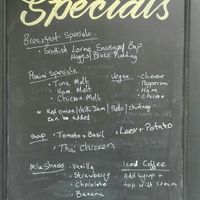 Specials
Breakfast Specials
• Scottish Lorne Sausage Bap
Haggis/Black Pudding
Panini Specials
• Tuna Melt
Ham Melt
• Chicken Melt
Vegan - Cheese
• Pepperoni
• Ham
• Chicken
* Red onion/chilli Jam/Pesto/chutney
can be added
Soup • Tomato + Basil
• Leek + Potato
• Thai Chicken
Milkshakes • Vanilla
• Strawberry
• Chocolate
• Banana
Iced Coffee
Add syrup +
top with cream